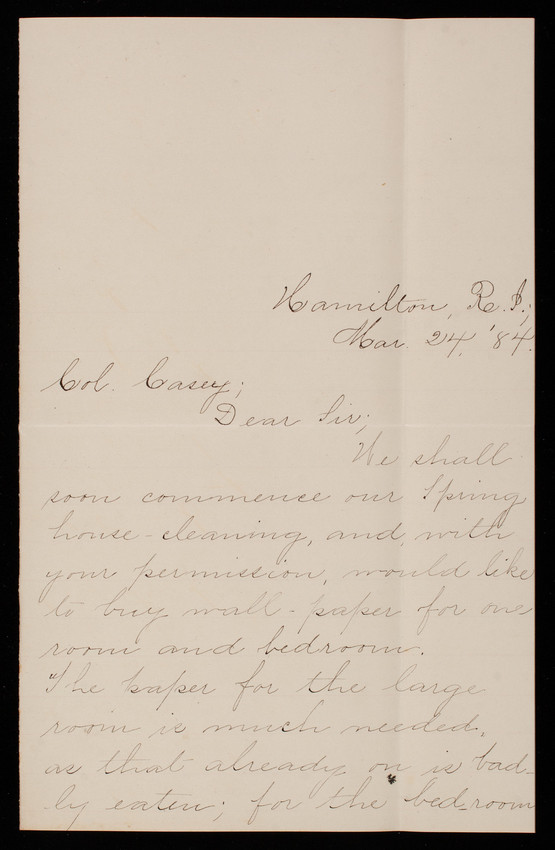 Hamilton, R. I.;
Mar. 24, '84.
Col. Casey;
Dear Sir;
We shall
soon commence our Spring
house-cleaning, and, with
your permission, would like
to buy wall-paper for one
room and bedroom.
The paper for the large
room is much needed,
as that already on is bad-
ly eaten; for the bed-room